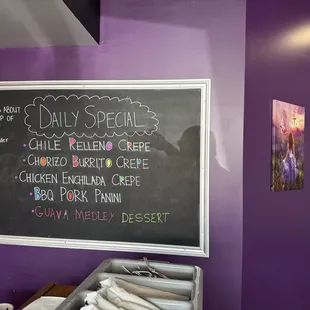 DAILY SPECIAL
S ABOUT
P OF
CHILE RELLENO CREPE
CHORIZO BURRITO CREPE
CHICKEN ENCHILADA CREPE
BBQ PORK PANINI
GUAVA MEDLEY DESSERT